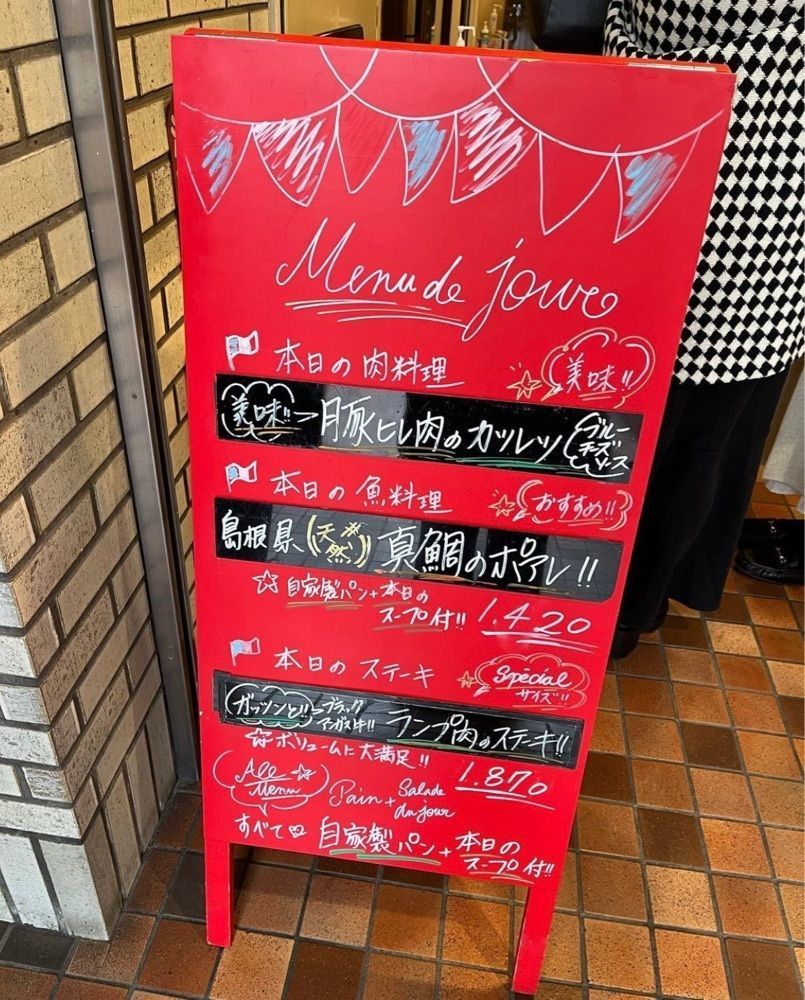 Menu de jour
本日の肉料理 美味!!
美味!! 豚ヒレ肉のカツレツ ブルーチーズソース
本日の魚料理 おすすめ!!
島根県(天然)真鯛のポアレ!!
☆自家製パン+本日のスープ付!! 1.420
本日のステーキ Spécial サイズ!!
ガッツンと!! ブラックアンガス牛!! ランプ肉のステーキ!!
☆ボリュームに大満足!! 1.870
All Menu ☆ Pain + Salade du jour
すべて♡ 自家製パン+本日のスープ付!!